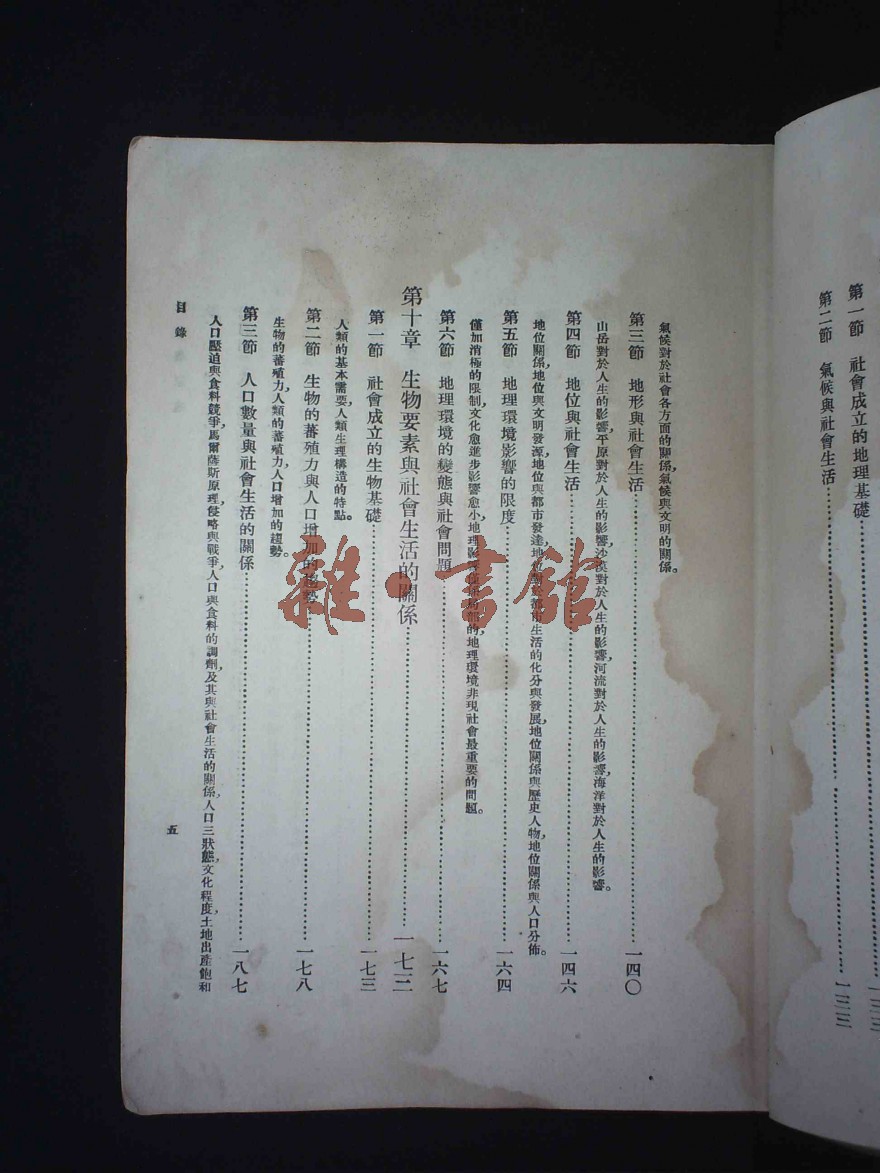 第一節　社會成立的地理基礎
第二節　氣候與社會生活
氣候對於社會各方面的關係,氣候與文明的關係。
第三節　地形與社會生活……一四〇
山岳對於人生的影響,平原對於人生的影響,沙漠對於人生的影響,河流對於人生的影響,海洋對於人生的影響。
第四節　地位與社會生活……一四六
地位關係,地位與文明發源,地位與都市發達,地位對於都市生活的化分與發展,地位關係與歷史人物,地位關係與人口分佈。
第五節　地理環境影響的限度……一六四
僅加消極的限制,文化愈進步影響愈小,地理影響的,地理環境非現社會最重要的問題。
第六節　地理環境的變態與社會問題……一六七
第十章　生物要素與社會生活的關係……一七三
第一節　社會成立的生物基礎……一七三
人類的基本需要,人類生理構造的特點。
第二節　生物的蕃殖力與人口增加的趨勢……一七八
生物的蕃殖力,人類的蕃殖力,人口增加的趨勢。
第三節　人口數量與社會生活的關係……一八七
人口壓迫與食料競爭,馬爾薩斯原理,侵略與戰爭,人口與食料的調劑及其與社會生活的關係,人口三狀態,文化程度,土地出產飽和
目錄
五
雜·書館